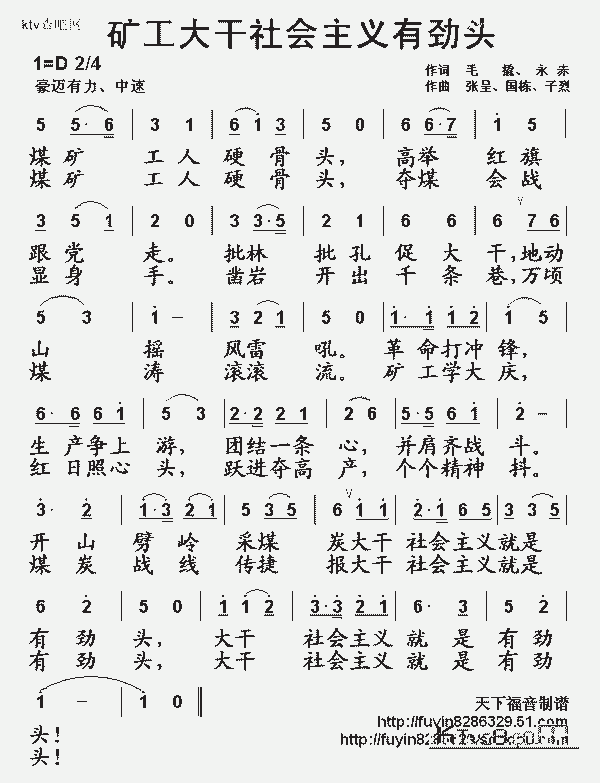 矿工大干社会主义有劲头
1=D 2/4
豪迈有力、中速
作词 毛 撬、永赤
作曲 张呈、国栋、子烈
5 5· 6 | 3 1 | 6 1 3 | 5 0 | 6 6·7 | 1 5 |
煤矿 工人 硬骨 头， 高举 红旗
煤矿 工人 硬骨 头， 夺煤 会战
3 5 1 | 2 0 | 3 3·5 | 2 1 | 6 6 | 6 7 6 |
跟党 走。 批林 批孔 促大 干，地动
显身 手。 凿岩 开出 千条 巷，万顷
5 3 | 1 – | 3 2 1 | 5 0 | 1· 1 1 2 | 1 5 |
山 摇 风雷 吼。 革命打冲 锋，
煤 涛 滚滚 流。 矿工学大 庆，
6· 6 6 1 | 5 3 | 2·2 2 1 | 2 6 | 5·5 6 1 | 2 – |
生产争上 游， 团结一条 心， 并肩齐战 斗。
红日照心 头， 跃进夺高 产， 个个精神 抖。
3· 2 | 1·3 2 1 | 5 3 5 | 6 1 1 | 2·1 6 5 | 3 5 3 5 |
开山 劈岭 采煤 炭大干 社会主义就是
煤炭 战线 传捷 报大干 社会主义就是
6 2 | 5 0 | 1 1 2 | 3·3 2 1 | 5 5 | 6 2 |
有劲 头， 大干 社会主义 就是 有劲
有劲 头， 大干 社会主义 就是 有劲
1 – | 1 0 ‖
头！
头！
天下福音制谱
http://fuyin8286329.51.com